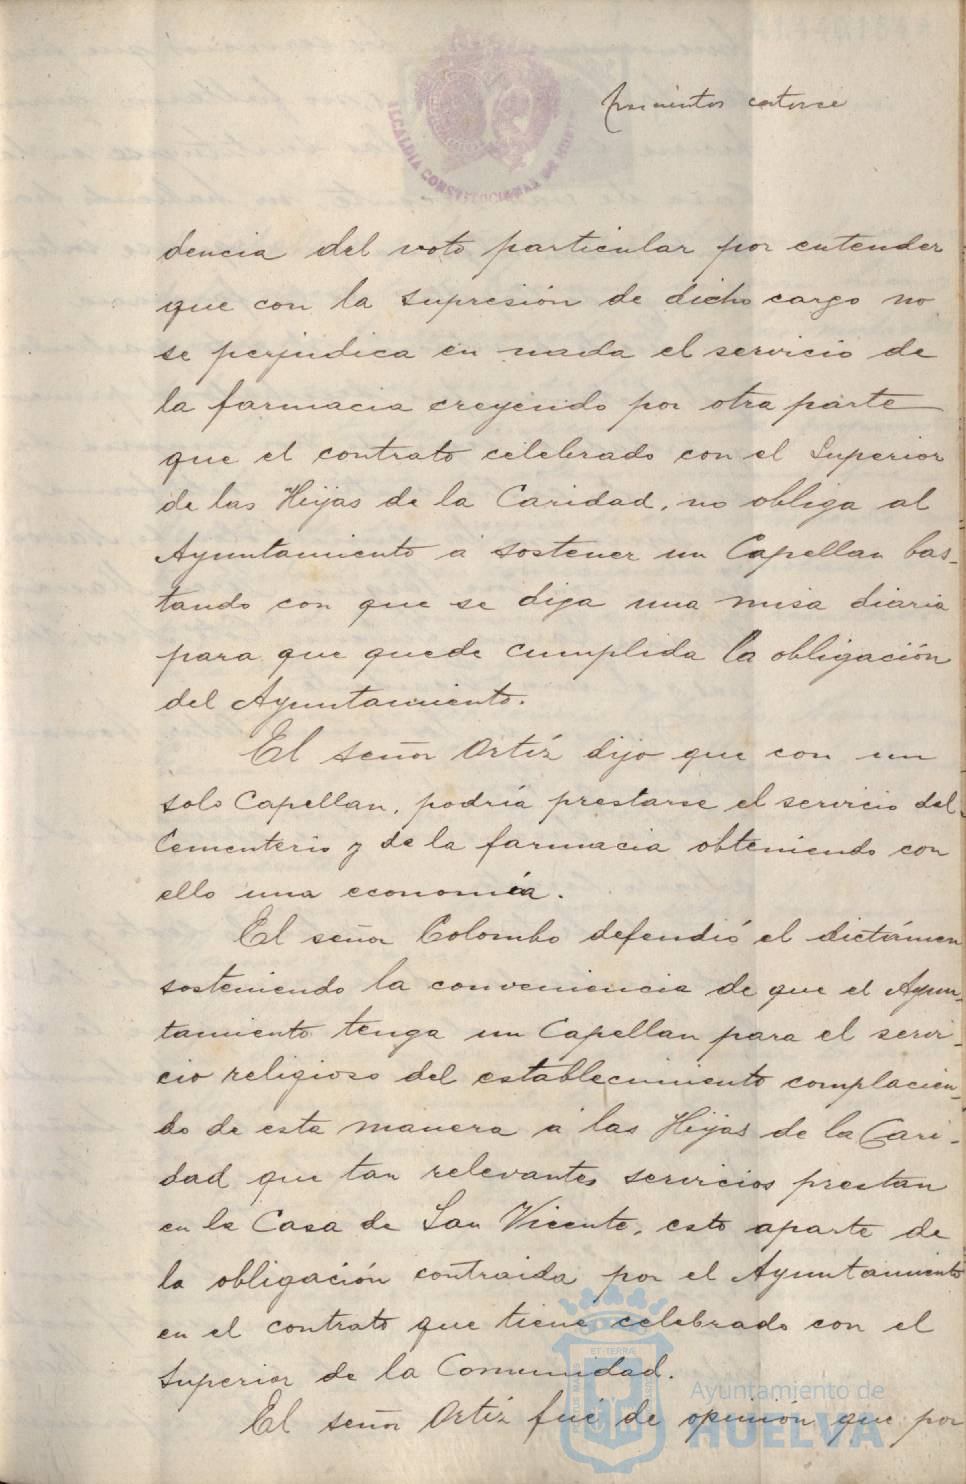 ALCALDIA CONSTITUCIONAL DE HUELVA
catorce
dencia del voto particular por entender
que con la supresión de dicho cargo no
se perjudica en nada el servicio de
la farmacia creyendo por otra parte
que el contrato celebrado con el Superior
de las Hijas de la Caridad, no obliga al
Ayuntamiento a sostener un Capellan bas-
tando con que se diga una misa diaria
para que quede cumplida la obligación
del Ayuntamiento.
El señor Ortiz dijo que con un
solo Capellan, podría prestarse el servicio del
Cementerio y de la farmacia obteniendo con
ello una economía.
El señor Colombo defendió el dictámen
sosteniendo la conveniencia de que el Ayun-
tamiento tenga un Capellan para el servi-
cio religioso del establecimiento complacien-
do de esta manera a las Hijas de la Cari-
dad que tan relevantes servicios prestan
en la Casa de San Vicente, esto aparte de
la obligación contraida por el Ayuntamiento
en el contrato que tiene celebrado con el
Superior de la Comunidad.
El señor Ortiz fué de opinión que por
ET TERRÆ
Ayuntamiento de
HUELVA